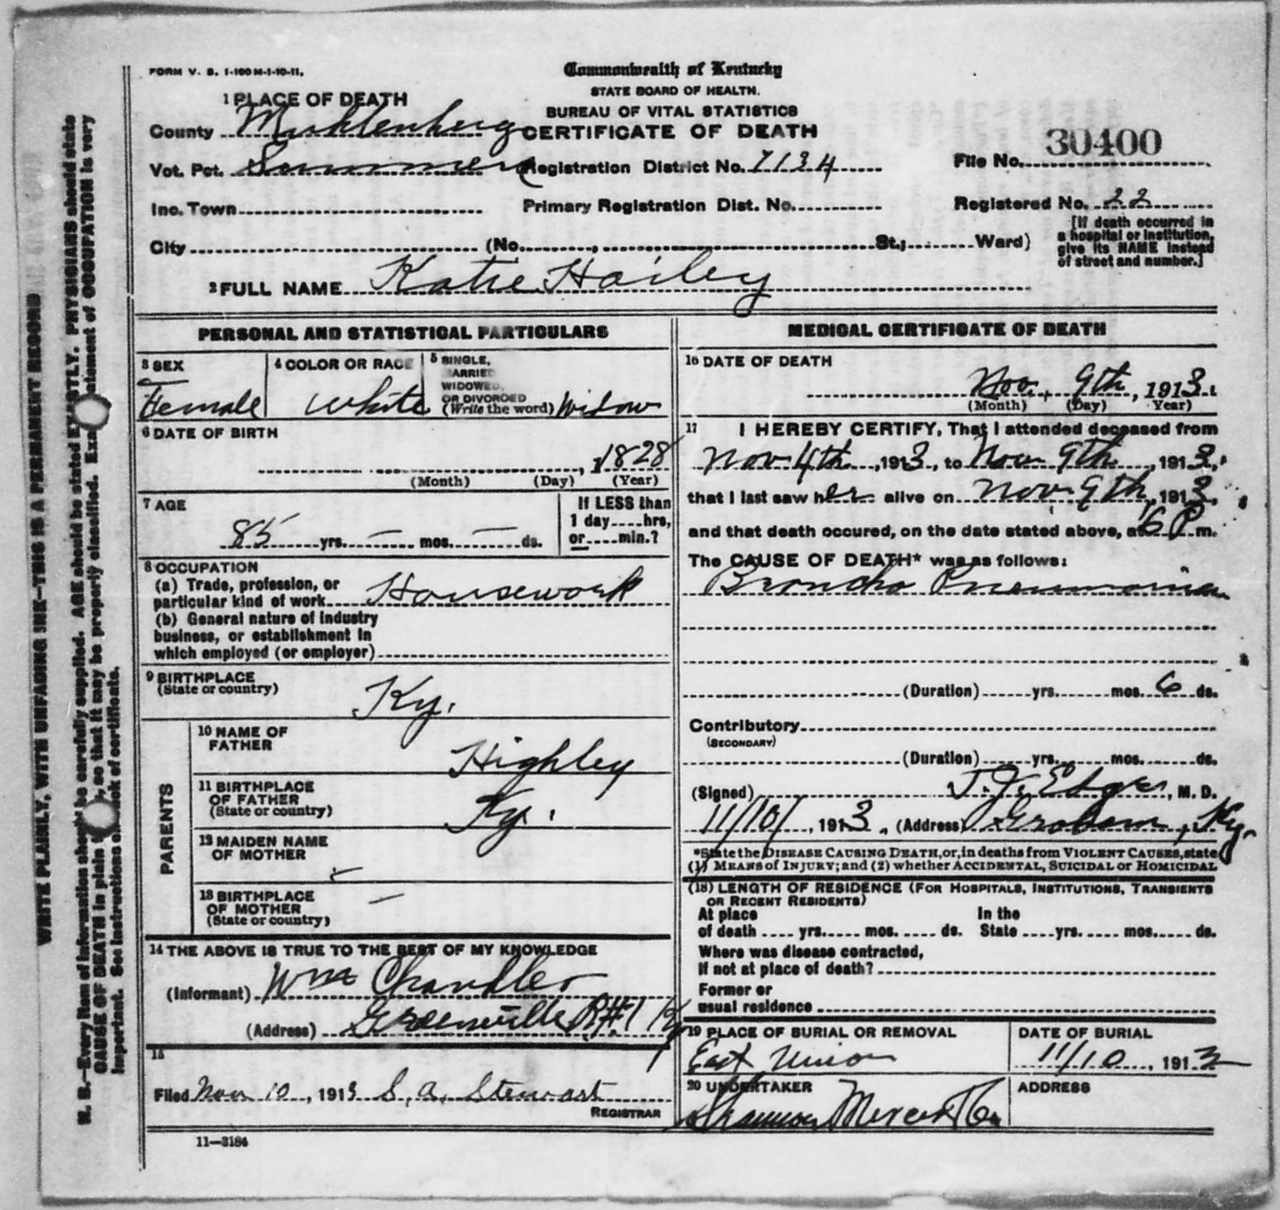 FORM V. S. 1-100 M-1-10-11.
Commonwealth of Kentucky
STATE BOARD OF HEALTH.
BUREAU OF VITAL STATISTICS
CERTIFICATE OF DEATH
1 PLACE OF DEATH
County Muhlenberg
Vot. Pct. Registration District No. 7134
File No. 30400
Inc. Town Primary Registration Dist. No.
Registered No. 22
City (No. , St.; Ward)
[If death occurred in
a hospital or institution,
give its NAME instead
of street and number.]
2 FULL NAME Katie Hailey
PERSONAL AND STATISTICAL PARTICULARS
3 SEX
Female
4 COLOR OR RACE
White
5 SINGLE,
MARRIED
WIDOWED,
OR DIVORCED
(Write the word) Widow
6 DATE OF BIRTH
, 1828
(Month) (Day) (Year)
7 AGE
85 yrs. — mos. — ds.
If LESS than
1 day ---- hrs,
or ---- min.?
8 OCCUPATION
(a) Trade, profession, or
particular kind of work Housework
(b) General nature of industry
business, or establishment in
which employed (or employer)
9 BIRTHPLACE
(State or country)
Ky.
PARENTS
10 NAME OF
FATHER
Highley
11 BIRTHPLACE
OF FATHER
(State or country)
Ky.
12 MAIDEN NAME
OF MOTHER
13 BIRTHPLACE
OF MOTHER
(State or country)
—
14 THE ABOVE IS TRUE TO THE BEST OF MY KNOWLEDGE
(Informant) Wm Chandler
(Address) Greenville R#1 Ky
15
Filed Nov 10, 1913 S. A. Stewart
REGISTRAR
11—3184
MEDICAL CERTIFICATE OF DEATH
16 DATE OF DEATH
Nov. 9th, 1913.
(Month) (Day) Year)
17 I HEREBY CERTIFY, That I attended deceased from
Nov 4th, 1913, to Nov. 9th, 1913,
that I last saw her alive on Nov. 9th, 1913,
and that death occured, on the date stated above, at 6 P.m.
The CAUSE OF DEATH* was as follows:
Broncho Pneumonia
(Duration) yrs. mos. 6 ds.
Contributory
(SECONDARY)
(Duration) yrs. mos. ds.
(Signed) M. D.
11/10/, 1913. (Address) Graham, Ky.
*State the DISEASE CAUSING DEATH, or, in deaths from VIOLENT CAUSES, state
(1) MEANS of INJURY; and (2) whether ACCIDENTAL, SUICIDAL or HOMICIDAL
(18) LENGTH OF RESIDENCE (FOR HOSPITALS, INSTITUTIONS, TRANSIENTS
OR RECENT RESIDENTS)
At place In the
of death yrs. mos. ds. State yrs. mos. ds.
Where was disease contracted,
If not at place of death?
Former or
usual residence
19 PLACE OF BURIAL OR REMOVAL
East Union
DATE OF BURIAL
11/10, 1913
20 UNDERTAKER
ADDRESS
WRITE PLAINLY, WITH UNFADING INK—THIS IS A PERMANENT RECORD
N. B.—Every item of information should be carefully supplied. AGE should be stated EXACTLY. PHYSICIANS should state
CAUSE OF DEATH in plain so that it may be properly classified. Exact statement of OCCUPATION is very
important. See instructions on back of certificate.